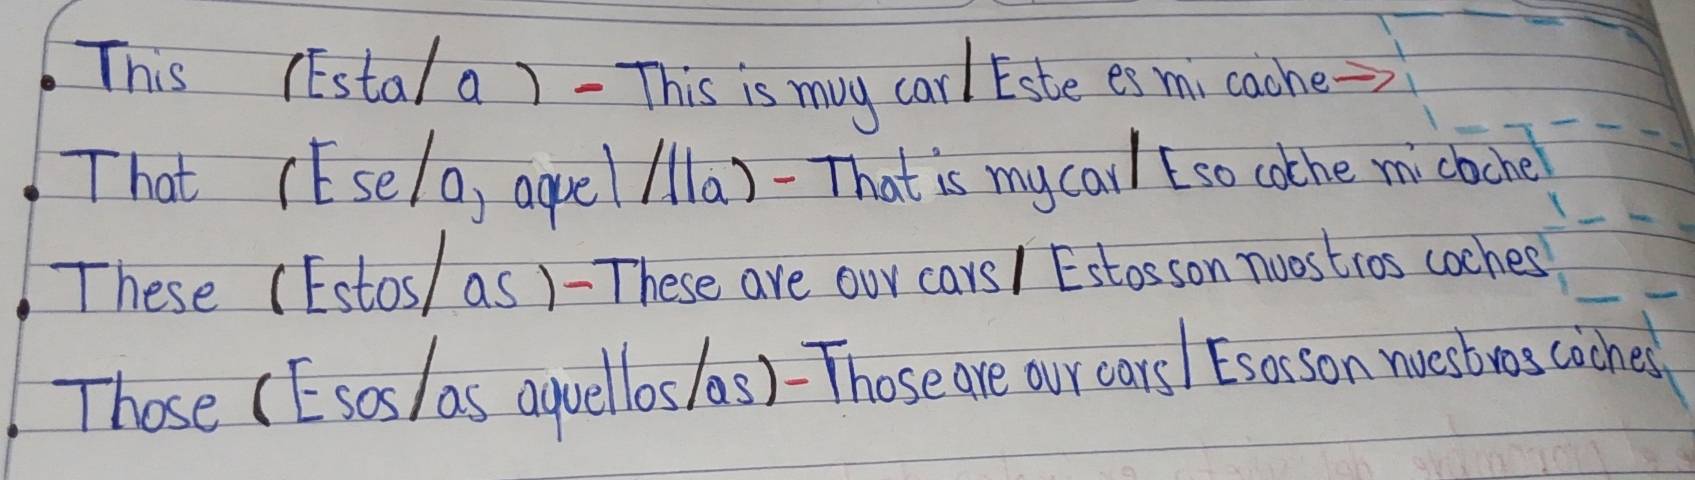 • This (Esta/a) - This is muy car/ Este es mi cache →
• That (Ese/a, aquel/lla) - That is my car/ Eso coche mi coche
• These (Estos/as) - These are our cars/ Estos son nuostros coches
• Those (Esos/as aquellos/as) - Those are our cars/ Esos son nuestros coches